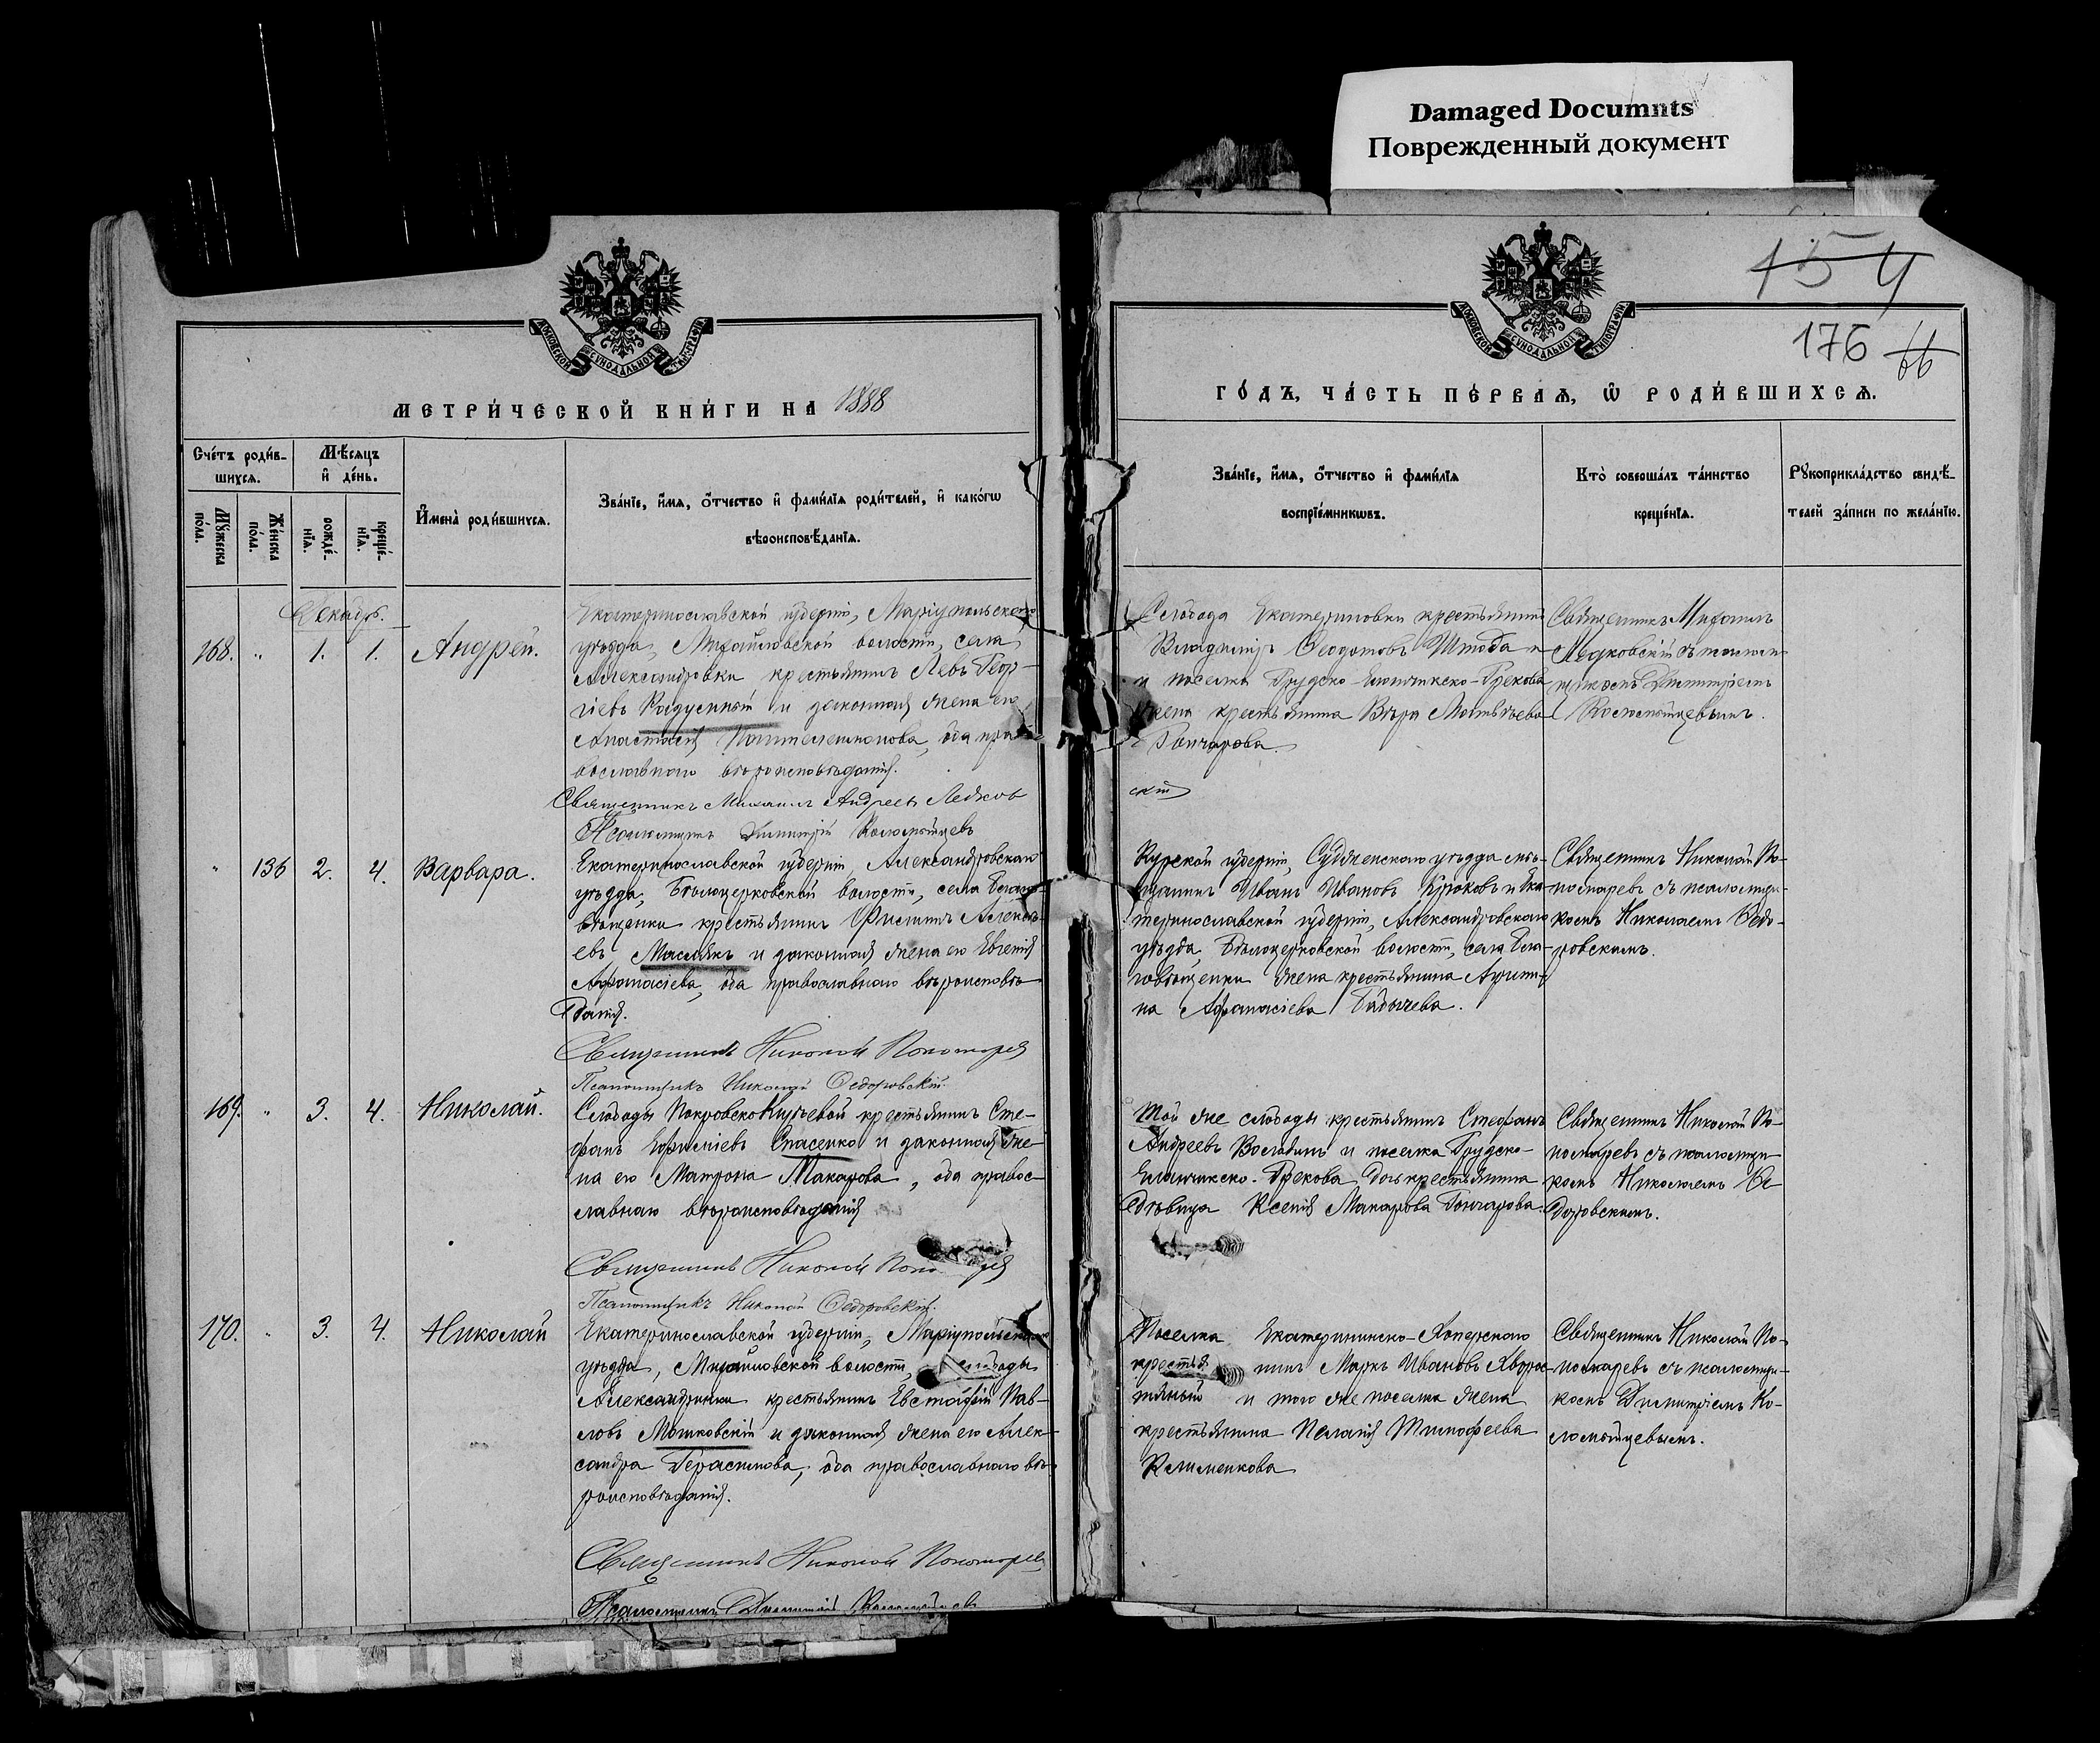 Damaged Documnts
Поврежденный документ
154
176 66
МОСКОВСКОЙ СУНОДАЛЬНОЙ ТИПОГРАФІИ
МОСКОВСКОЙ СУНОДАЛЬНОЙ ТИПОГРАФІИ
МЕТРИЧЕСКОЙ КНИГИ НА 1888
ГОДЪ, ЧАСТЬ ПЕРВАЯ, Ѡ РОДИВШИХСЯ.
Счетъ родив-
шихся.
Мѣсяцъ
и день.
Мужеска
пола.
Женска
пола.
рожде-
нія.
креще-
нія.
Имена родившихся.
Званіе, имя, отчество и фамилія родителей, и какогѡ
вѣроисповѣданія.
Званіе, имя, отчество и фамилія
воспріемникѡвъ.
Кто совершалъ таинство
крещенія.
Рукоприкладство свидѣ-
телей записи по желанію.
Декабрь.
168. " 1. 1. Андрей.
Екатеринославской губерніи, Маріупольскаго
уѣзда, Михайловской волости, села
Александровки крестьянинъ Левъ Геор-
гіевъ и законная жена его
Анастасія Пантелеимонова, оба пра-
вославнаго вѣроисповѣданія.
Священникъ Михаилъ Андреевъ Ледков
Псаломщикъ Димитрій Коломійцевъ
Слобода Екатериновки крестьянинъ
Владиміръ Федотовъ Штоба и
и поселка Грузско-Еланчикско-Грекова
жена крестьянина Вѣра Матвѣева
Гончарова.
скій
Священникъ Михаилъ
Ледковскій съ псалом-
щикомъ Димитріемъ
Коломійцевымъ.
" 136 2. 4. Варвара.
Екатеринославской губерніи, Александровскаго
уѣзда, Бѣлоцерковской волости, села Благо-
вѣщенки крестьянинъ Филиппъ Алексѣ-
евъ Маслакъ и законная жена его Евгенія
Афанасіева, оба православнаго вѣроисповѣ-
данія.
Священникъ Николай Пономарев
Псаломщикъ Николай Федоровскій.
Курской губерніи, Суджанскаго уѣзда мѣ-
щанинъ Иванъ Ивановъ Крюковъ и Ека-
теринославской губерніи, Александровскаго
уѣзда, Бѣлоцерковской волости, села Бла-
говѣщенки жена крестьянина Агрипи-
на Афанасіева
Священникъ Николай По-
номаревъ съ псаломщи-
комъ Николаемъ Федо-
ровскимъ.
169. " 3. 4. Николай.
Слободы Покровско-Кирѣевой крестьянинъ Сте-
фанъ Ефиміевъ Спасенко и законная же-
на его Матрона Макарова, оба правос-
лавнаго вѣроисповѣданія
Священникъ Николай Поно рев
Псаломщикъ Николай Федоровскій.
Той же слободы крестьянинъ Стефанъ
Андреевъ и поселка Грузско-
Еланчикско-Грекова дочь крестьянина
дѣвица Ксенія Макарова Гончарова.
Священникъ Николай По-
номаревъ съ псаломщи-
комъ Николаемъ Фе-
доровскимъ.
170. " 3. 4. Николай
Екатеринославской губерніи, Маріупольскаго
уѣзда, Михайловской волости, слободы
Александринки крестьянинъ Евстафій Пав-
ловъ Мошковскій и законная жена его Алек-
сандра Герасимова, оба православнаго вѣ-
роисповѣданія.
Священникъ Николай Пономарев
Псаломщикъ Димитрій Коломійцевъ
Поселка Екатерининско-Хоперскаго
крестья нинъ Маркъ Ивановъ Хворос-
тяный и того же поселка жена
крестьянина Пелагія Тимофеева
Клименкова
Священникъ Николай По-
номаревъ съ псаломщи-
комъ Димитріемъ Ко-
ломійцевымъ.